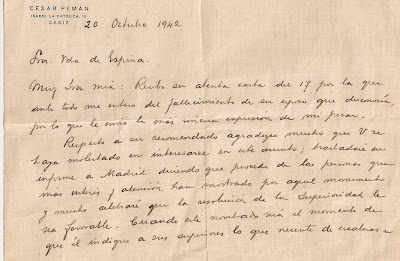 CESAR PEMÁN
ISABEL LA CATÓLICA, 13
CADIZ
20 Octubre 1942
Sra. Vda. de Espina.
Muy Sra. mía: Recibo su atenta carta del 17 por la que
ante todo me entero del fallecimiento de su esposo que desconocía
por lo que le envío la más sincera expresión de mi pesar.
Respecto a su recomendado agradezco mucho que V se
haya molestado en interesarse en este asunto; trasladaré su
informe a Madrid diciendo que procede de las personas que
más interés y atención han mostrado por aquel monumento
y mucho celebraré que la resolución de la Superioridad le
sea favorable. Cuando esté nombrado será el momento de
que él indique a sus superiores lo que necesite de